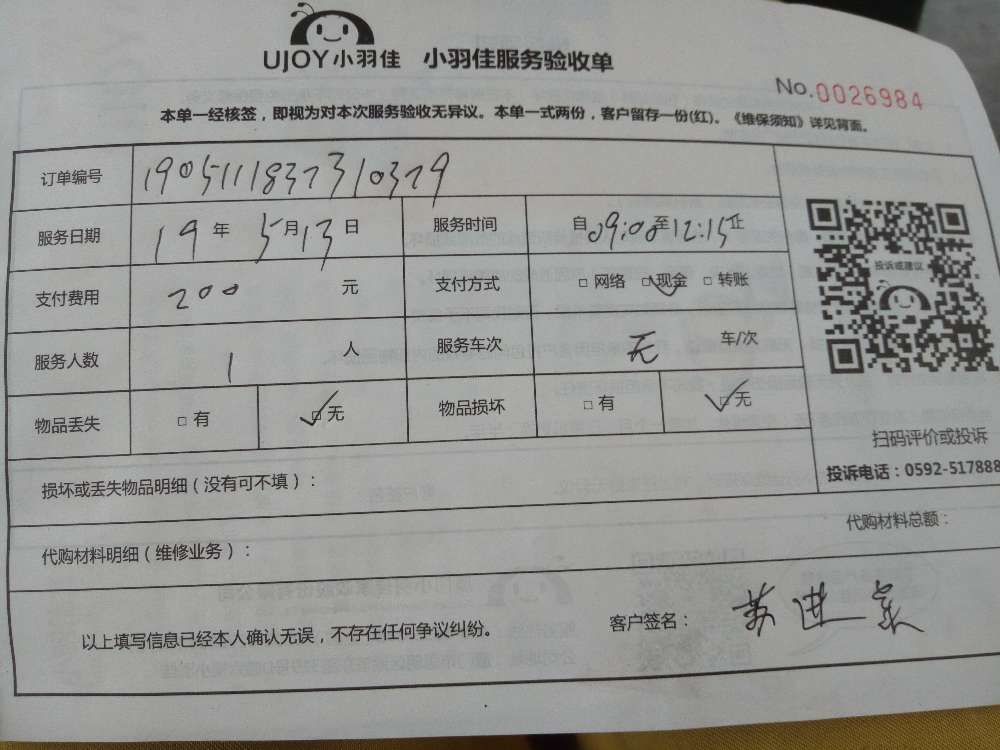 UJOY小羽佳 小羽佳服务验收单
No.0026984
本单一经核签，即视为对本次服务验收无异议。本单一式两份，客户留存一份(红)。《维保须知》详见背面。
订单编号 1905111837310379
服务日期 19年5月13日 服务时间 自09:00至12:15止
支付费用 200 元 支付方式 □网络 ☑现金 □转账
服务人数 1 人 服务车次 无 车/次
物品丢失 □有 ☑无 物品损坏 □有 ☑无
投诉或建议
扫码评价或投诉
投诉电话：0592-517888
损坏或丢失物品明细（没有可不填）：
代购材料明细（维修业务）： 代购材料总额：
以上填写信息已经本人确认无误，不存在任何争议纠纷。 客户签名：苏进